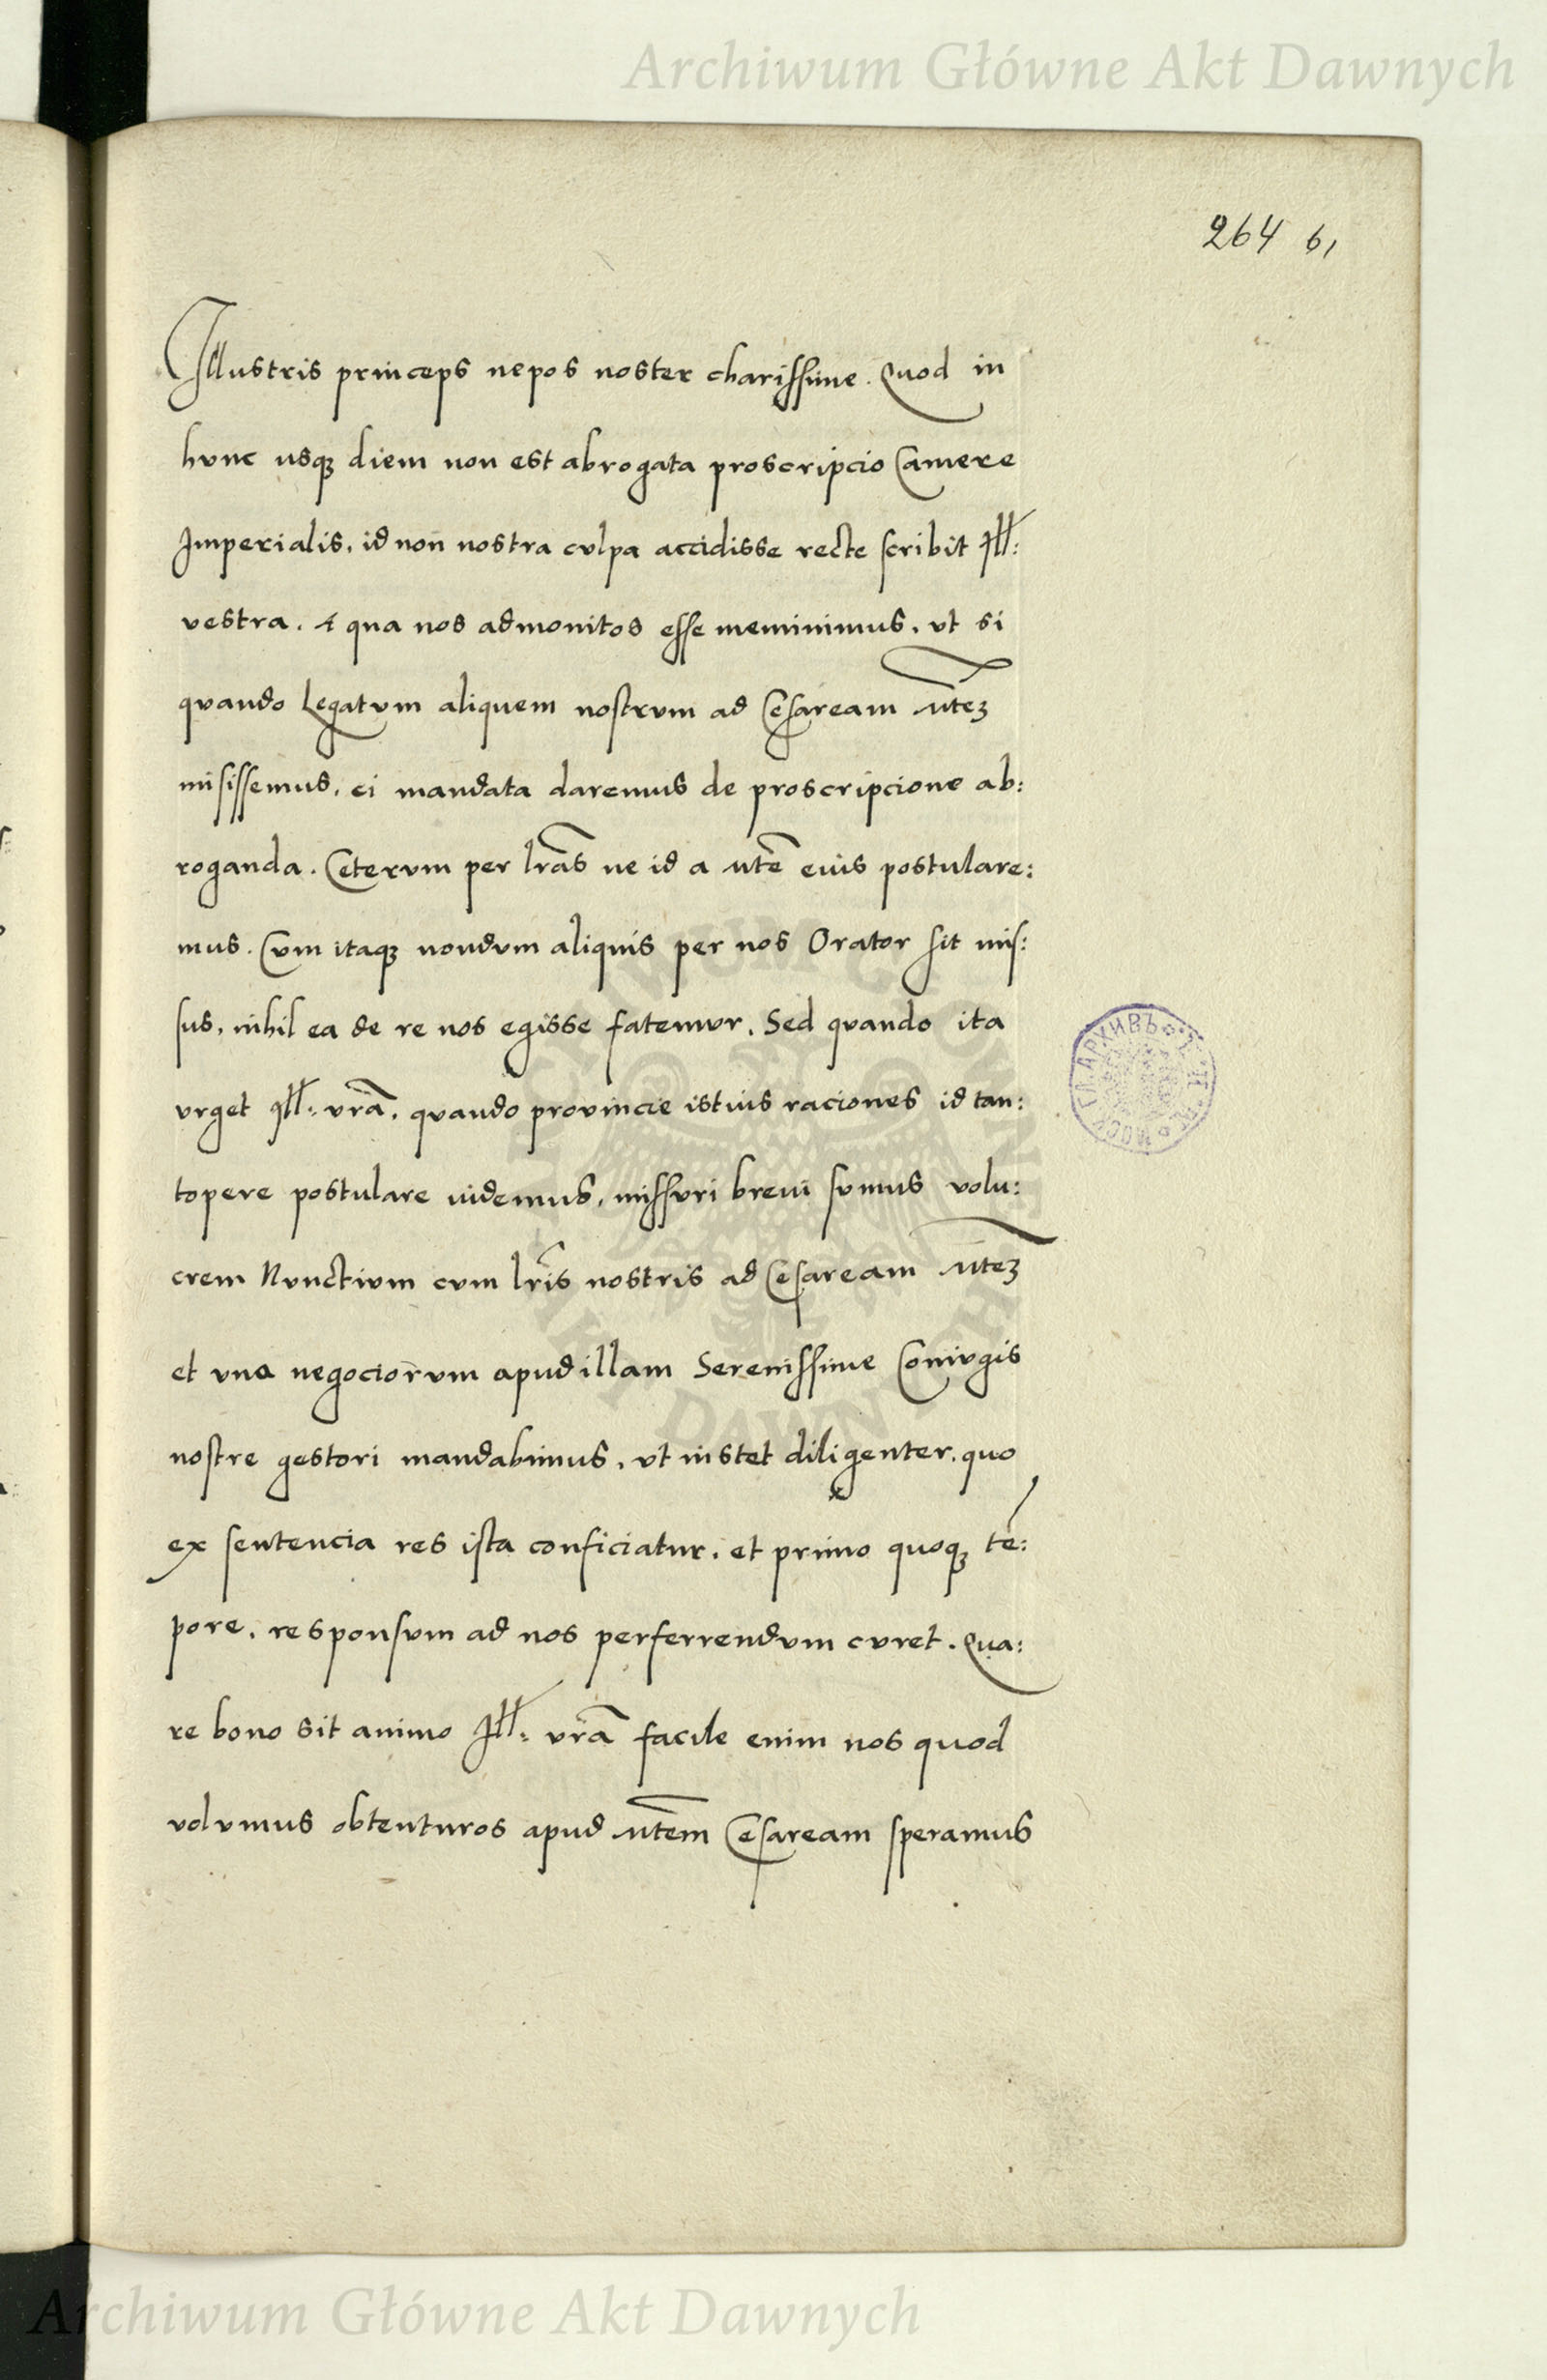 Archiwum Główne Akt Dawnych
264 61
Illustris princeps nepos noster charissime. Quod in
hunc usq3 diem non est abrogata proscripcio Camere
Imperialis, id non nostra culpa accidisse recte scribit Ill:
vestra. A qua nos admonitos esse meminimus, ut si
quando Legatum aliquem nostrum ad Cesaream Mtez
misissemus, ei mandata daremus de proscripcione ab:
roganda. Ceterum per lr̃as ne id a Mte eius postulare:
mus. Cum itaq3 nondum aliquis per nos Orator sit mis:
sus, nihil ea de re nos egisse fatemur. Sed quando ita
urget Ill: vr̃a, quando provincie istius raciones id tan:
topere postulare videmus, missuri brevi sumus volu:
crem Nunctium cum lr̃is nostris ad Cesaream Mtez
et una negociorum apud illam Serenissime Coniugis
nostre gestori mandabimus, ut instet diligenter, quo
ex sentencia res ista conficiatur, et primo quoq3 tẽ:
pore, responsum ad nos perferrendum curet. Qua:
re bono sit animo Ill: vr̃a facile enim nos quod
volumus obtenturos apud Mtem Cesaream speramus
Archiwum Główne Akt Dawnych